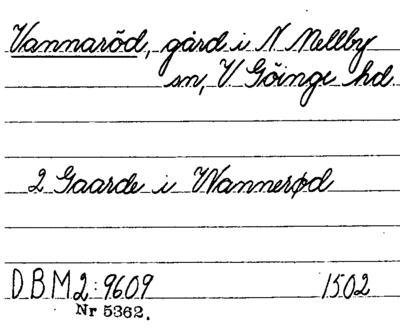 Vannaröd, gård i N Mellby
sn, V Göinge hd.
2 Gaarde i Wannerød
DBM2:9609 1502
Nr 5362.